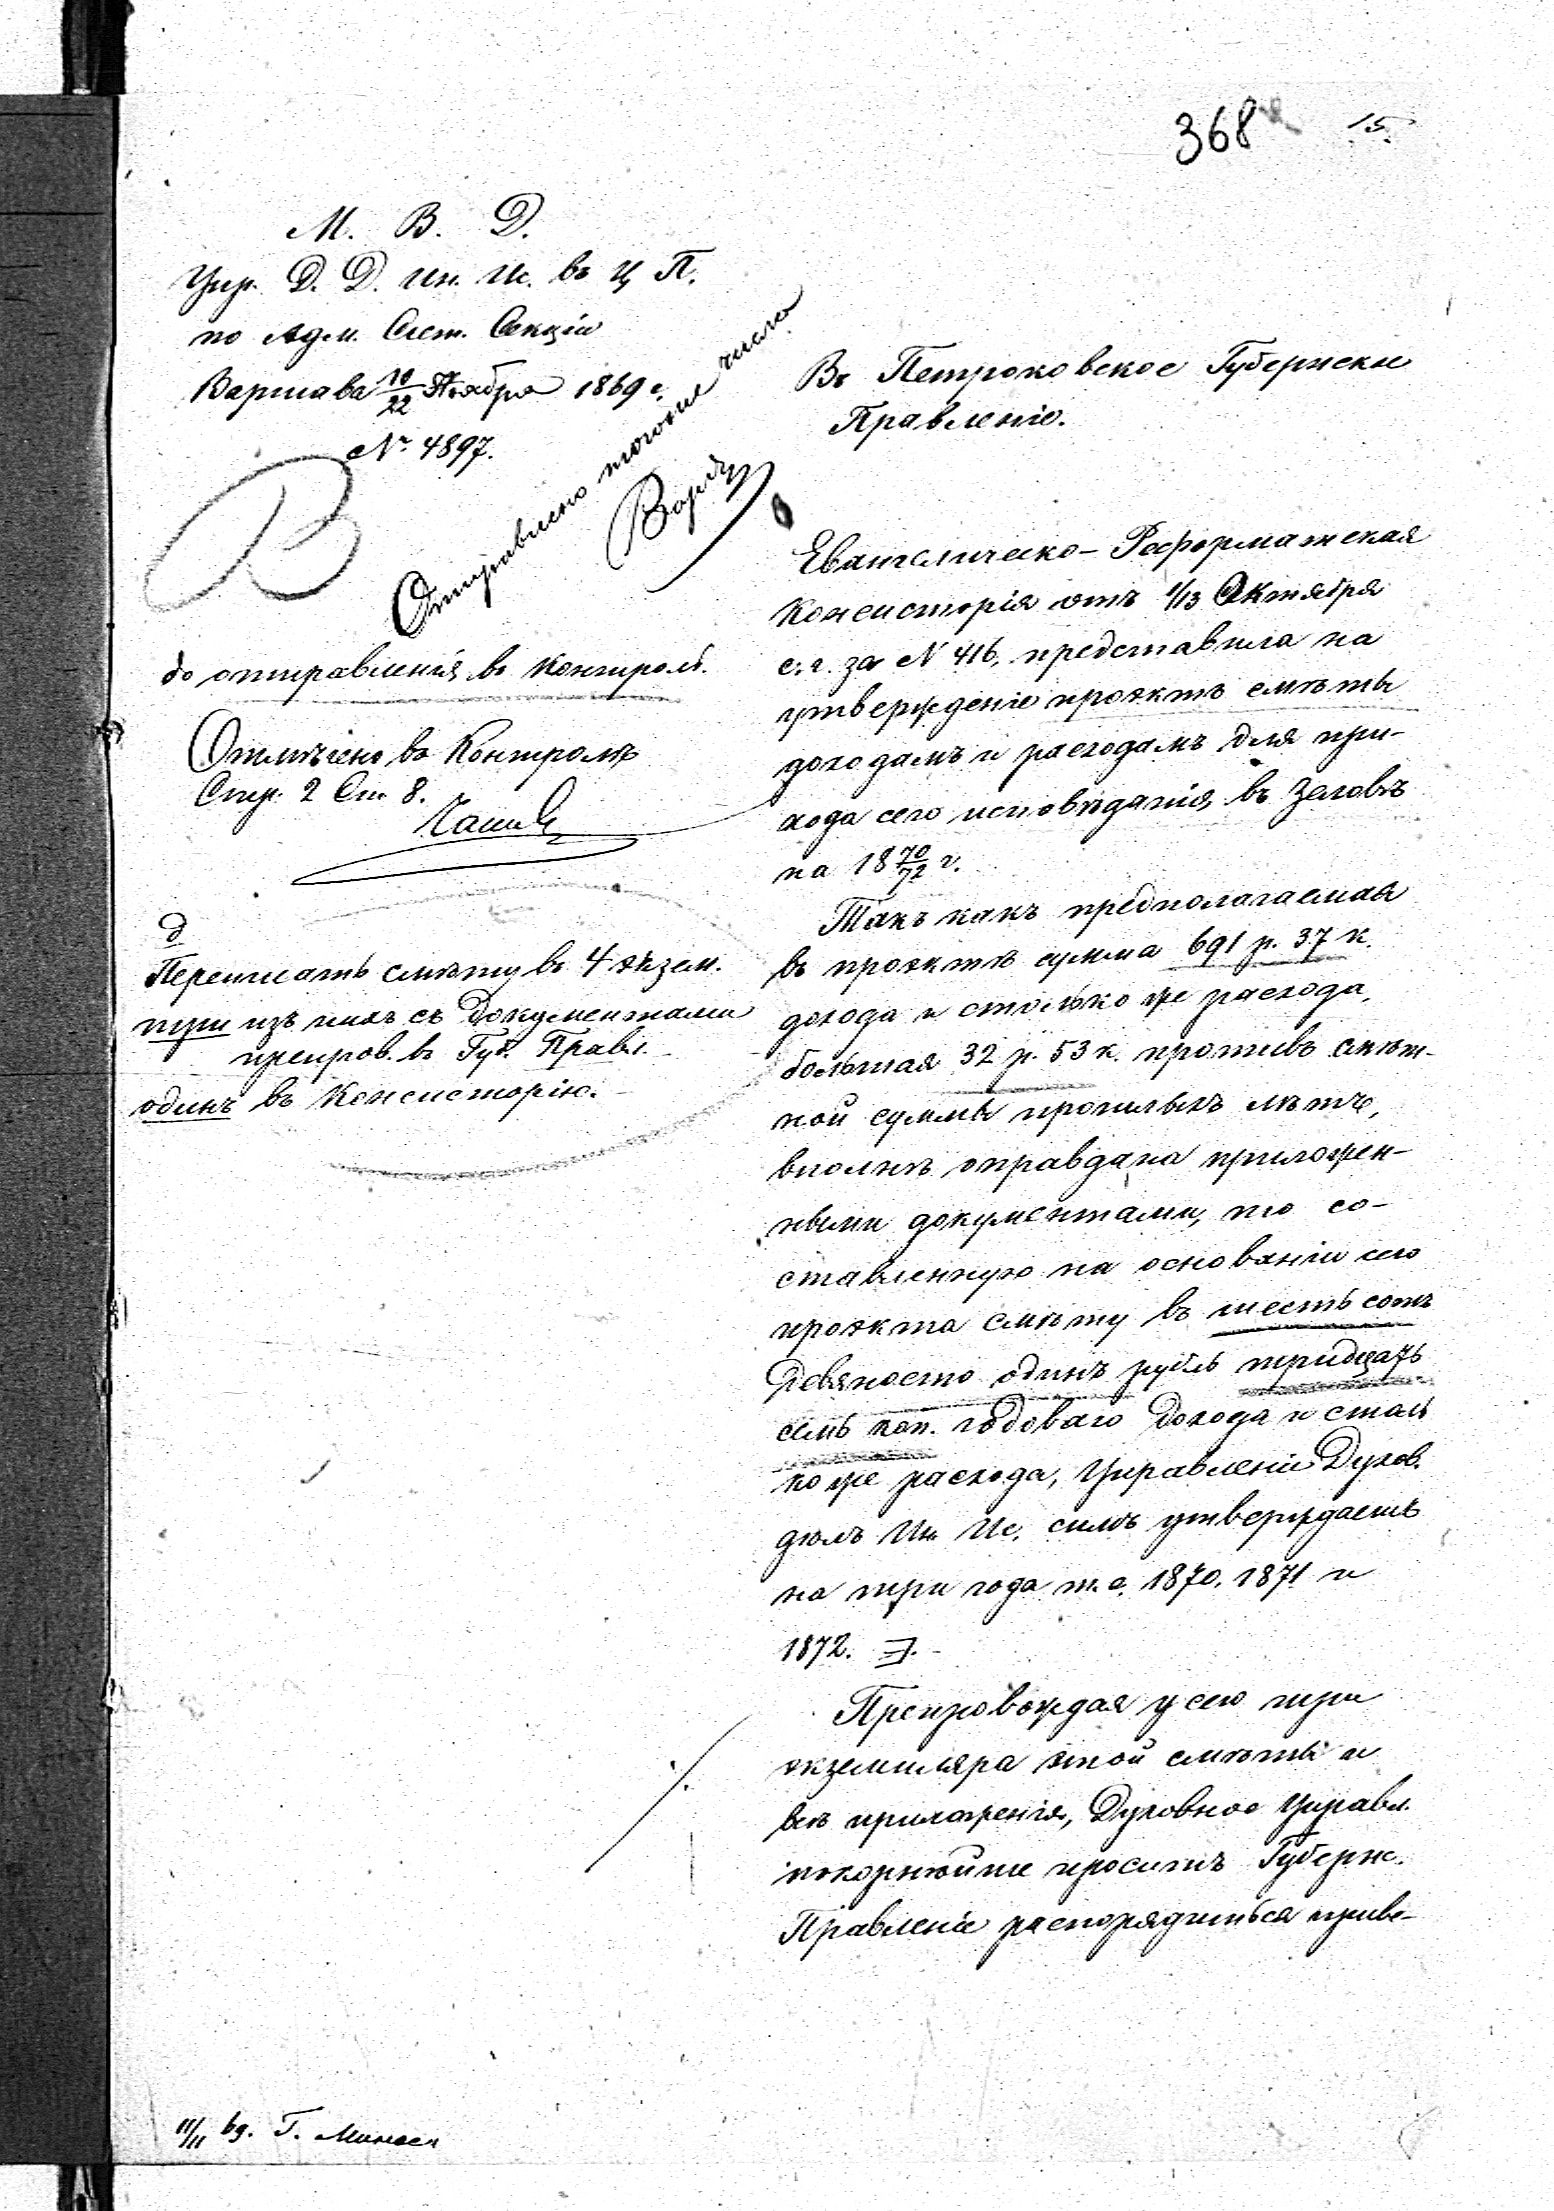 368
15.
М. В. Д.
Упр. Д. Д. Ин. Ис. въ Ц. П.
по Адм. Счет. Секціи
Варшава 10/22 Ноября 1869 г.
№ 4897.
Отправлено тогоже числа
В
до отправленія въ контроль.
Отмѣчено въ Контролѣ
Стр. 2 Ст. 8.
Д
Переписать смѣту въ 4 экзем.
три изъ нихъ съ документами
препров. въ Губ. Правл.
одинъ въ Консисторію.
Въ Петроковское Губернское
Правленіе.
Евангелическо-Реформатская
Консисторія отъ 1/13 Октября
с. г. за N 416, представила на
утвержденіе проэктъ смѣты
доходамъ и расходамъ для при-
хода сего исповѣданія въ Зеловѣ
на 18 70/72 г.
Такъ какъ предполагаемая
въ проэктѣ сумма 691 р. 37 к.
дохода и столько же расхода,
большая 32 р. 53 к. противъ смѣт-
ной суммы прошлыхъ лѣтъ,
вполнѣ оправдана приложен-
ными документами, то со-
ставленную на основаніи сего
проэкта смѣту въ шесть сотъ
девяносто одинъ рубль тридцать
семь коп. годоваго дохода и столь
ко же расхода, Управленіе Духов.
дѣлъ Ин. Ис. симъ утверждаетъ
на три года т. е. 1870. 1871 и
1872.
Препровождая у сего три
экземпляра этой смѣты и
всѣ приложенія, Духовное Управл.
покорнѣйше проситъ Губернс.
Правленіе распорядиться приве-
11/11 вд. Г.